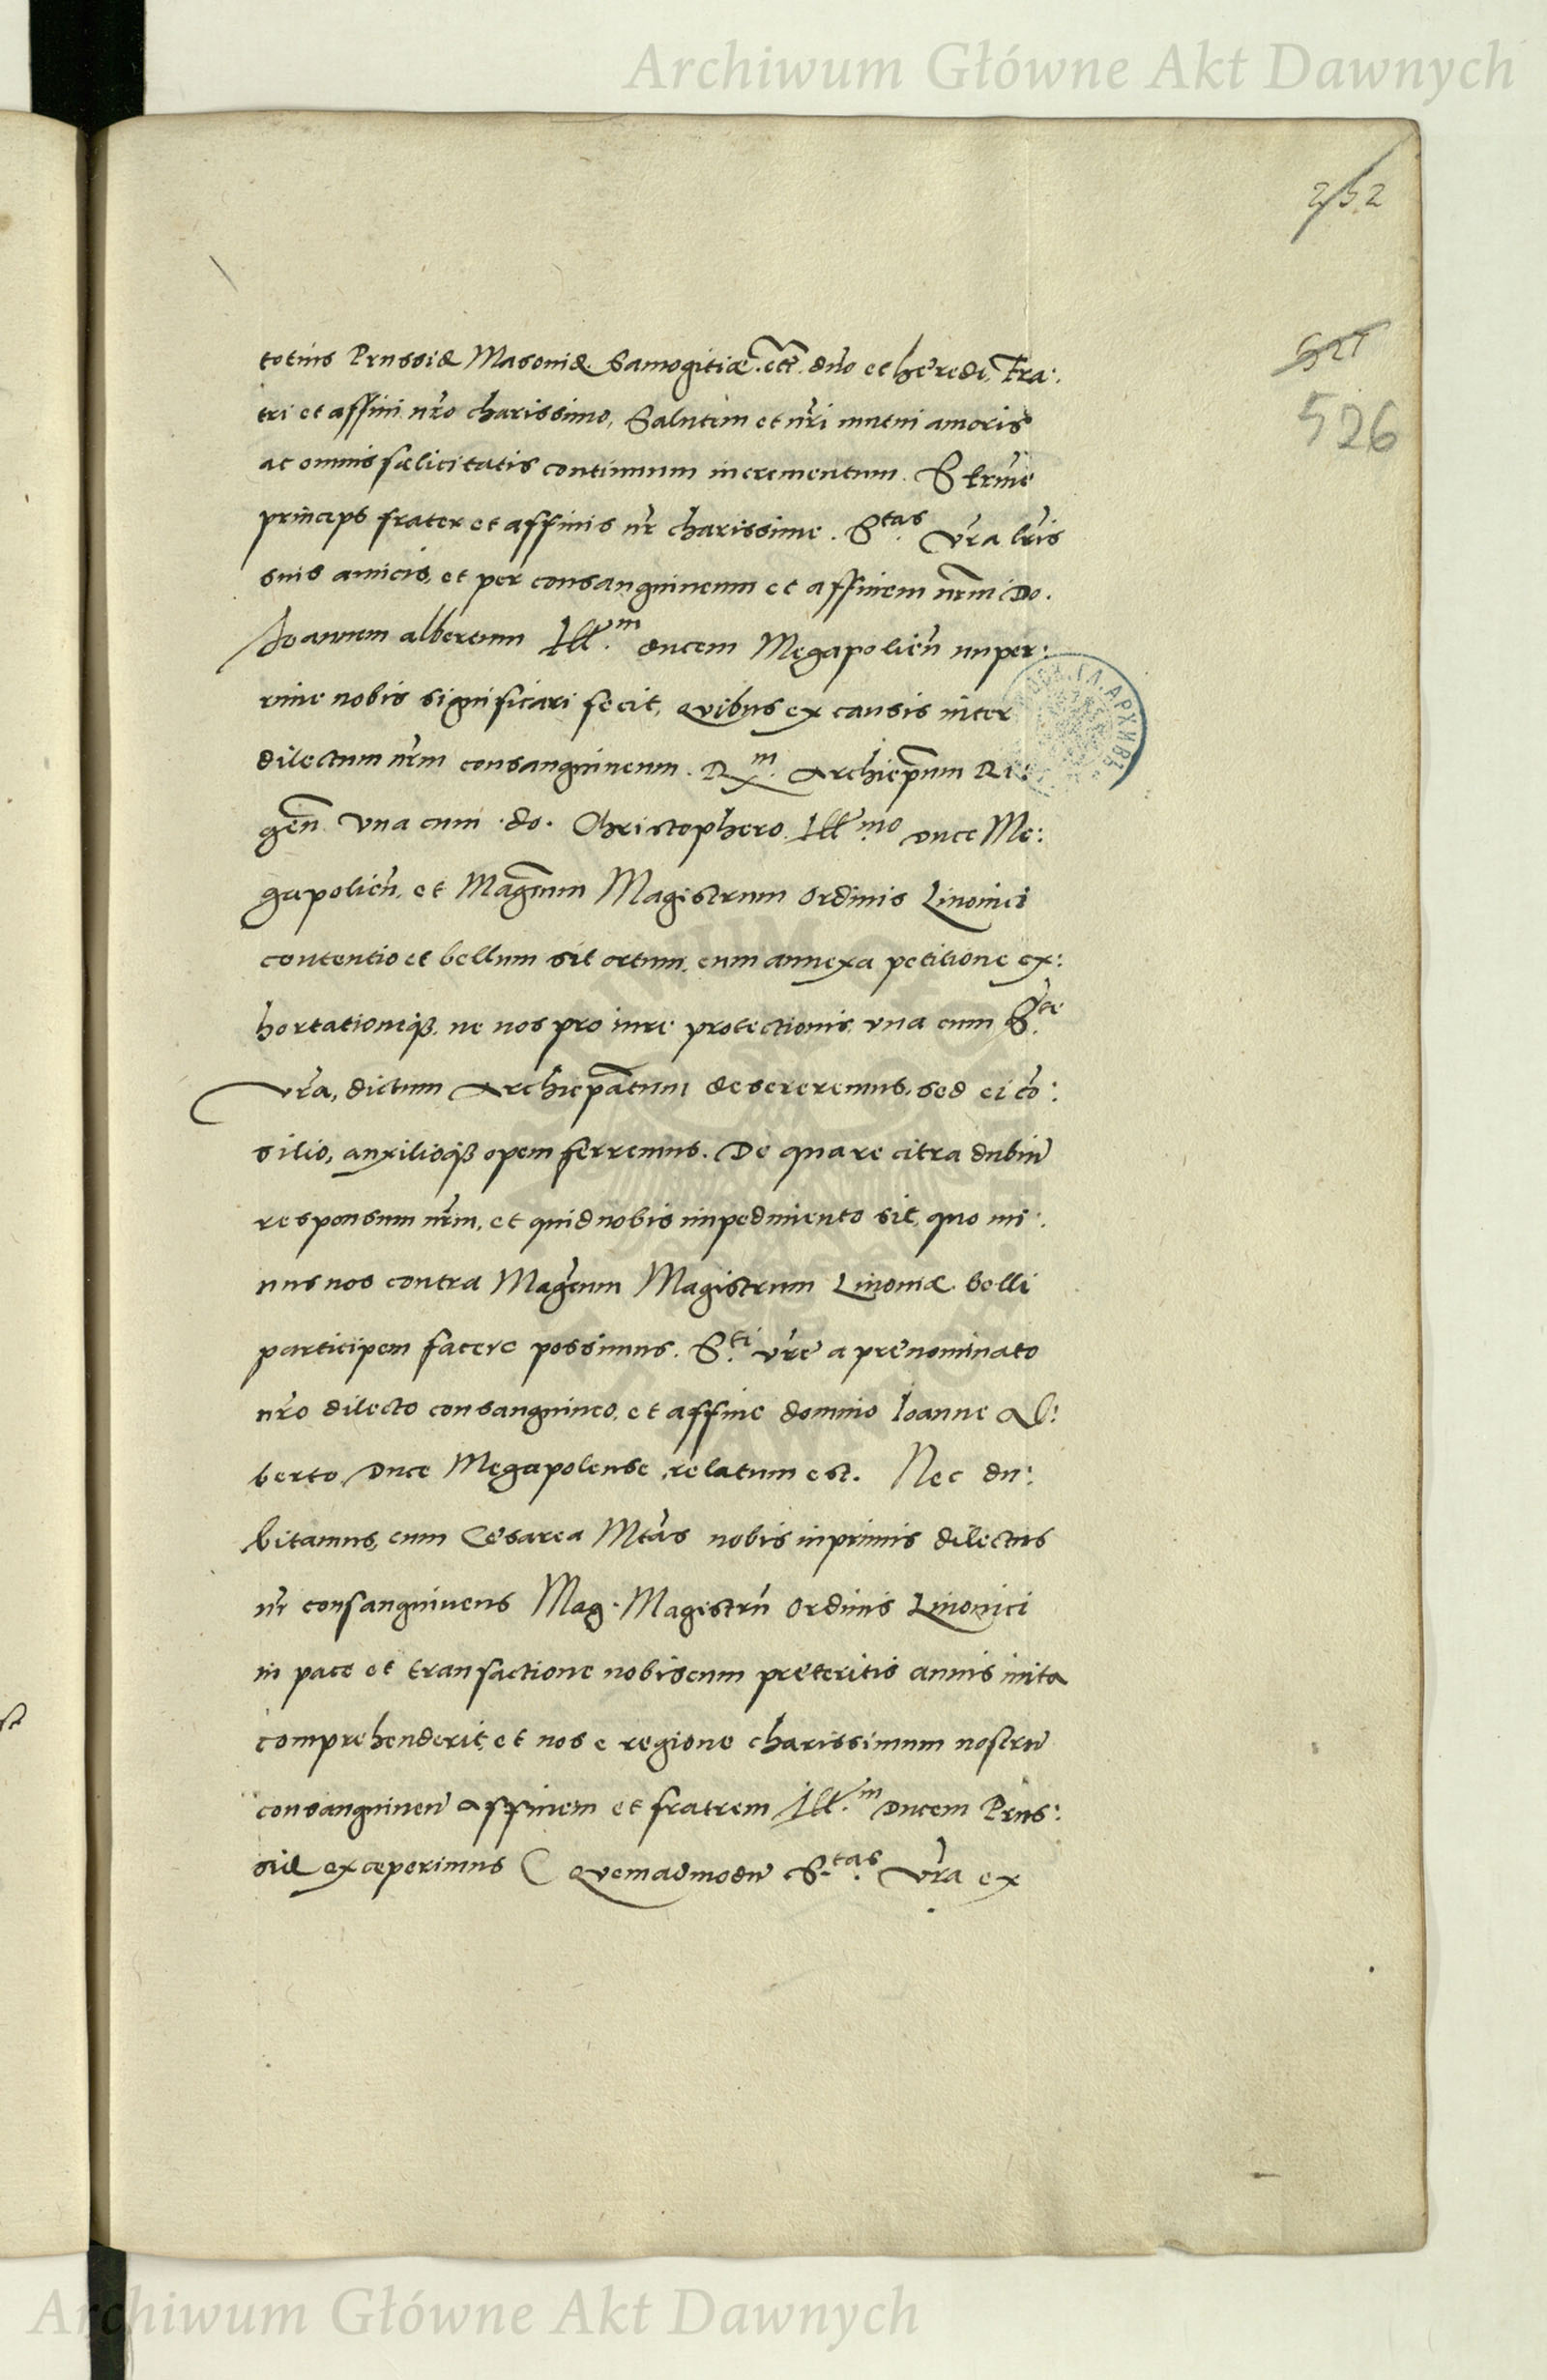 Archiwum Główne Akt Dawnych
252
527
526
totius Prussiæ Masoviæ Samogitiæ. etc. dn̄o et hęredi, Fra:
tri et affini nr̄o charissimo, Salutem et nr̄i mutui amoris
ac omnis fælicitatis continuum incrementum. Sermē
princeps frater et affinis nr̄ charissime. S.tas vr̄a lr̄is
suis amicis, et per consanguineum et affinem nr̄m Do.
Joannem albertum Ill.m ducem Megapolień nuper:
rime nobis significari fecit, quibus ex causis inter
dilectum nr̄m consanguineum. R.m Archiep̄um Ri:
geń una cum .do. Christophero Ill.mo duce Me:
gapolień, et Mag̃cum Magistrum ordinis Livonici
contentio et bellum sit ortum, cum annexa petitione ex:
hortationeq₃, ne nos pro iure protectionis, una cum S.te
vr̄a, dictum Archiep̄atum desereremus, sed ei cō:
silio, auxilioq₃ opem ferremus. De qua re citra dubiū
responsum nr̄m, et quid nobis impedimento sit, quo mi:
nus nos contra Mag̃cum Magistrum Livoniæ belli
participem facere possimus. S.ti vr̄e a prenominato
nr̄o dilecto consanguineo, et affine domino Joanne Al:
berto Duce Megapolense, relatum est. Nec du:
bitamus, cum Cesarea Mtās nobis inprimis dilectus
nr̄ consanguineus Mag. Magistrū ordinis Livonici
in pace et transactione nobiscum preteritis annis inita
comprehenderit, et nos e regione charissimum nostrū
consanguineū affinem et fratrem Ill.m Ducem Prus:
siæ exceperimus (Quemadmodū S.tas vr̄a ex
Archiwum Główne Akt Dawnych